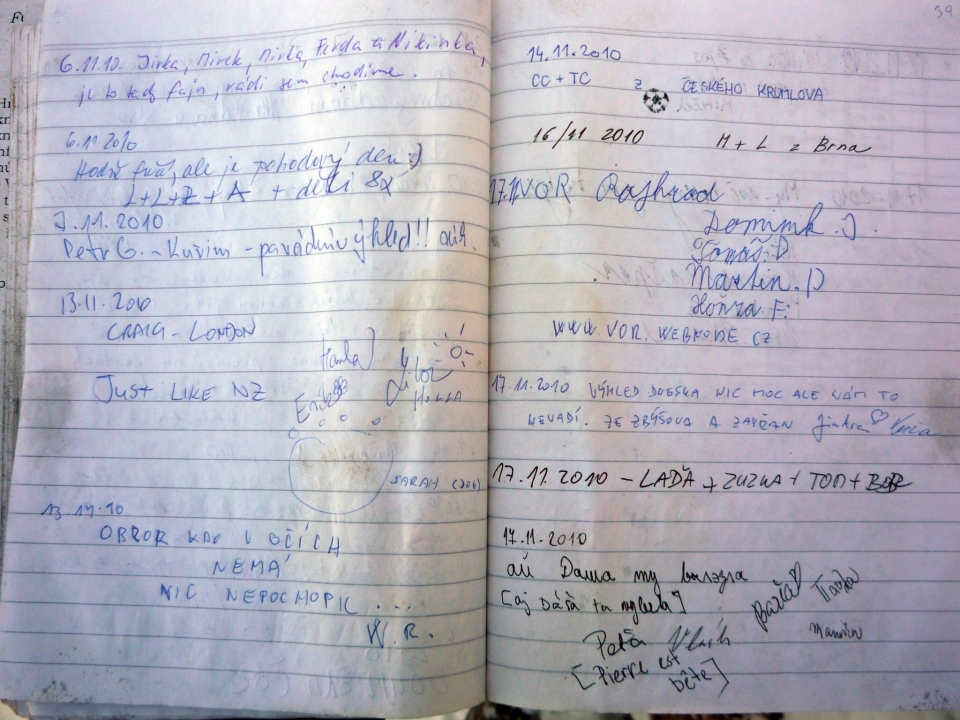 6.11.10. Jirka, Mirek, Mirka, Ferda a Nikinka,
je to tady fajn, rádi sem chodíme.
6.11.2010
Hodně fučí, ale je pohodový den :)
L+L+Z+A + děti 8x
7.11.2010
Petr G. - Kuřim - parádní výhled!!
13.11.2010
CRAIG - LONDON
JUST LIKE NZ
SARAH
13.11.10
OBROR KDO V OČÍCH
NEMÁ
NIC NEPOCHOPIL ...
W.R.
39
14.11.2010
CC + TC Z ČESKÉHO KRUMLOVA
16/11 2010 M + L z Brna
17.11 VOR Rajhrad
Dominik J.
Tomáš D
Martin. D
Honza F.
WWW.VOR.WEBNODE.CZ
17.11.2010 VÝHLED DNESKA NIC MOC ALE NÁM TO
NEVADÍ. ZE ZBÝŠOVA A Jindra
17.11.2010 - LAĎA + ZUZKA + TOM + BOB
17.11.2010
ай Даша
[aj Dáša]
Barča
Péťa
[Pierre est
bête]